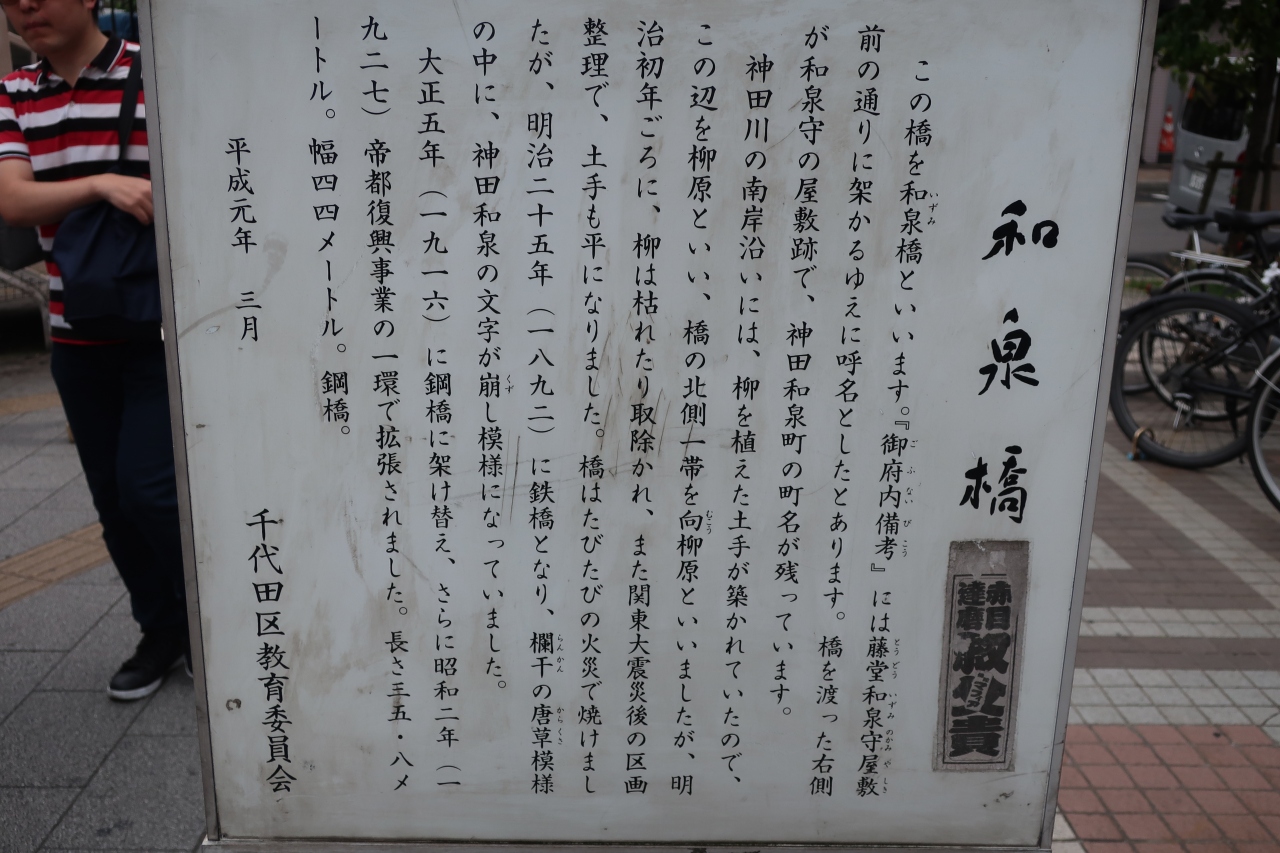 和泉橋
この橋を和泉橋といいます。『御府内備考』には藤堂和泉守屋敷
前の通りに架かるゆえに呼名としたとあります。橋を渡った右側
が和泉守の屋敷跡で、神田和泉町の町名が残っています。
神田川の南岸沿いには、柳を植えた土手が築かれていたので、
この辺を柳原といい、橋の北側一帯を向柳原といいましたが、明
治初年ごろに、柳は枯れたり取除かれ、また関東大震災後の区画
整理で、土手も平になりました。橋はたびたびの火災で焼けまし
たが、明治二十五年（一八九二）に鉄橋となり、欄干の唐草模様
の中に、神田和泉の文字が崩し模様になっていました。
大正五年（一九一六）に鋼橋に架け替え、さらに昭和二年（一
九二七）帝都復興事業の一環で拡張されました。長さ三五・八メ
ートル。幅四四メートル。鋼橋。
平成元年　三月
千代田区教育委員会
赤目
達磨